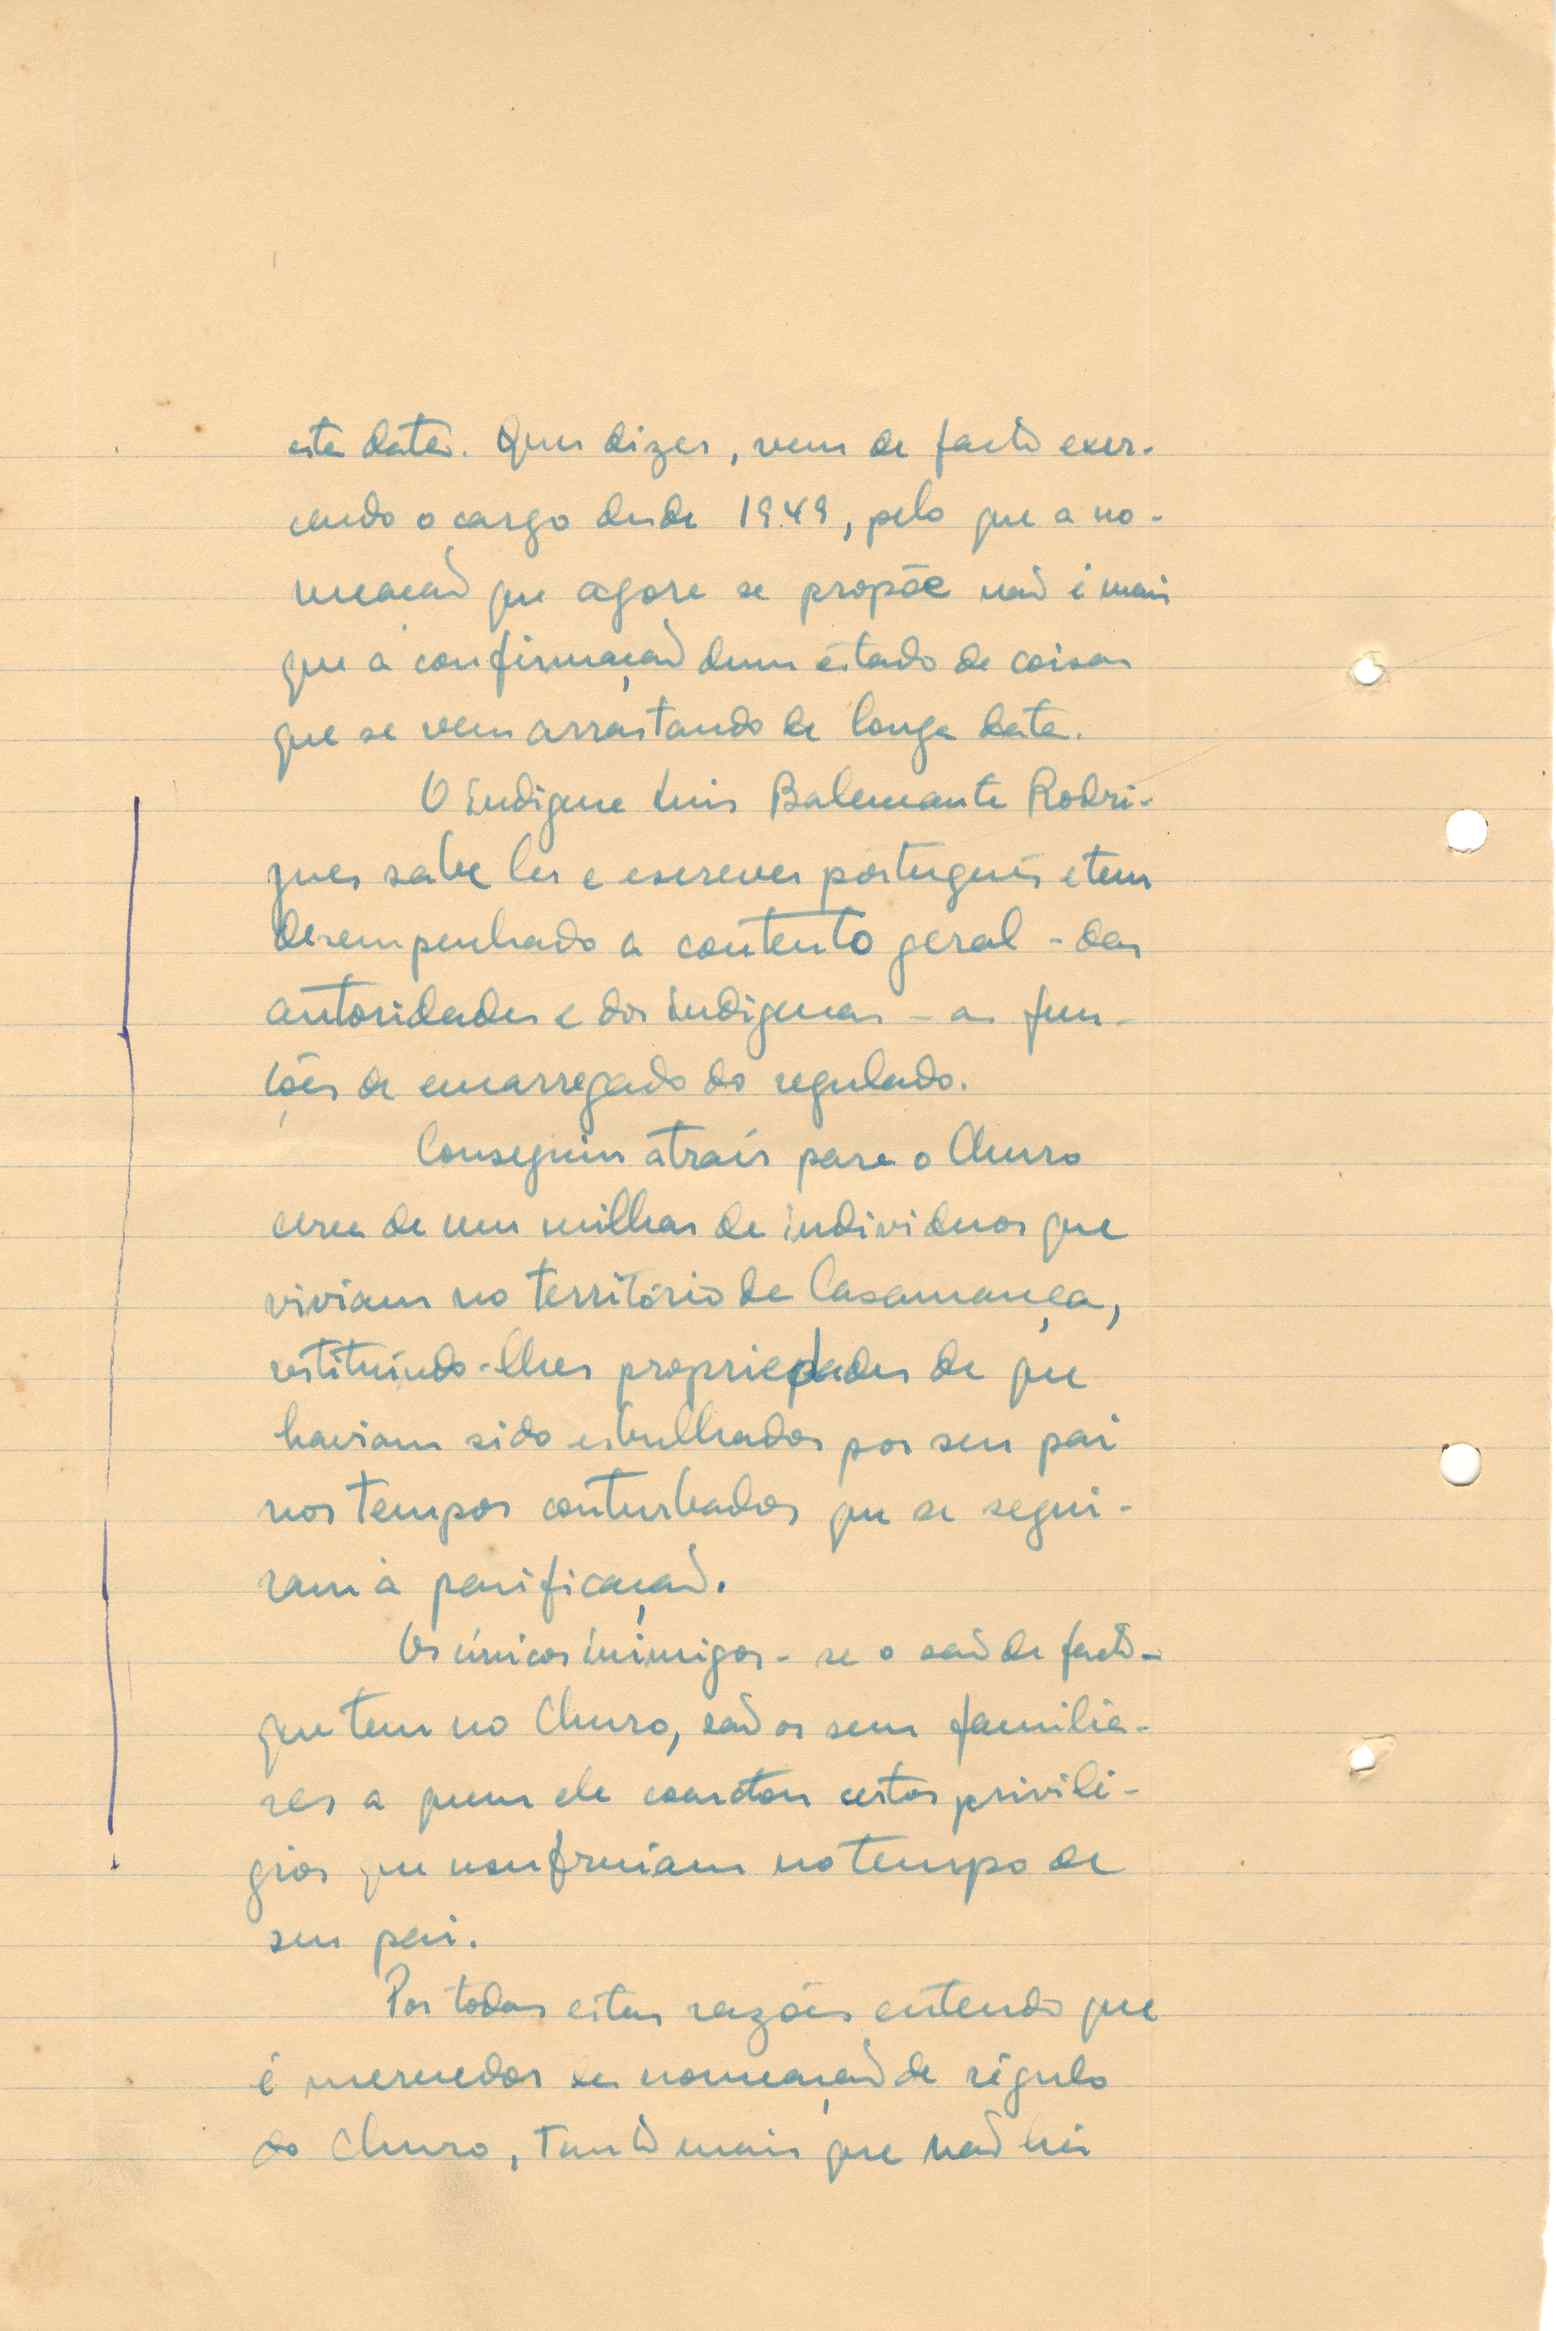 esta data. Quer dizer, vem de facto exer-
cendo o cargo desde 1949, pelo que a no-
meação que agora se propõe não é mais
que a confirmação dum estado de coisas
que se vem arrastando de longa data.
O indígena Luis Balemante Rodri-
gues sabe ler e escrever português e tem
desempenhado a contento geral - das
autoridades e dos indígenas - as fun-
ções de encarregado do regulado.
Conseguiu atrair para o Churo
cerca de um milhar de indivíduos que
viviam no território de Casamança,
restituíndo-lhes propriedades de que
haviam sido esbulhados por seu pai
nos tempos conturbados que se segui-
ram à pacificação.
Os únicos inimigos - se o são de facto -
que tem no Churo, são os seus familia-
res a quem ele coarctou certos privilé-
gios que usufruiam no tempo de
seu pai.
Por todas estas razões entendo que
é merecedor da nomeação de régulo
do Churo, tanto mais que não há